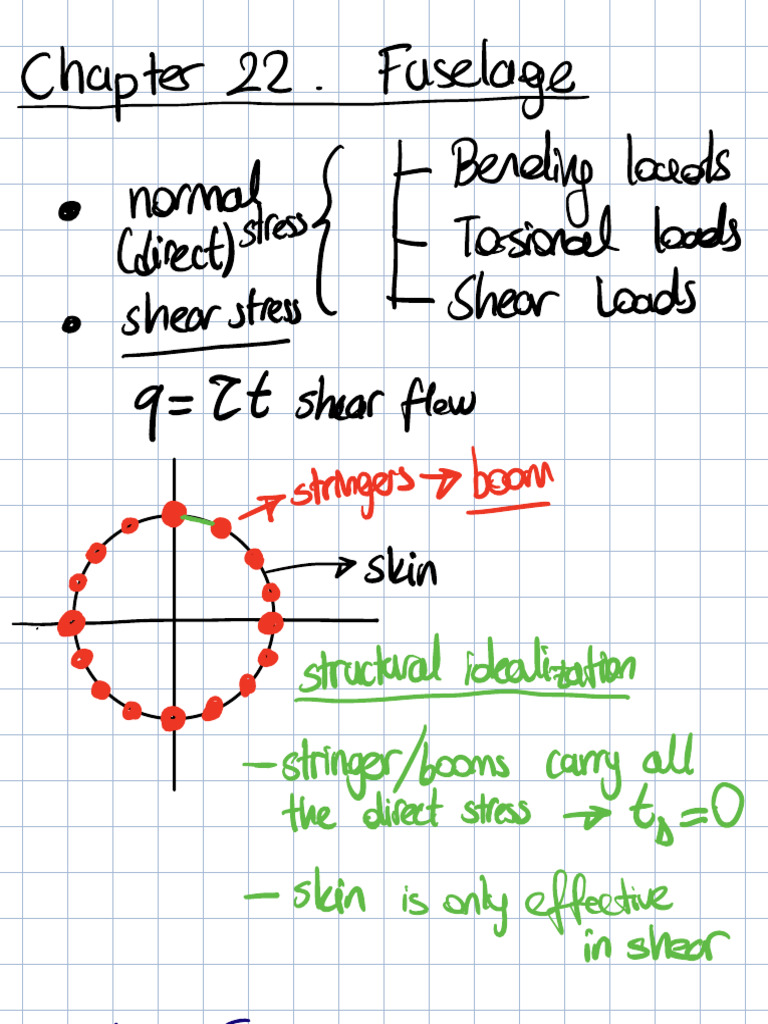 Chapter 22. Fuselage
• normal (direct) stress
• shear stress
Bending loads
Tossional loads
Shear Loads
q = τt shear flow
stringers → boom
skin
structural idealization
- stringer/booms carry all
the direct stress → t_D = 0
- skin is only effective
in shear